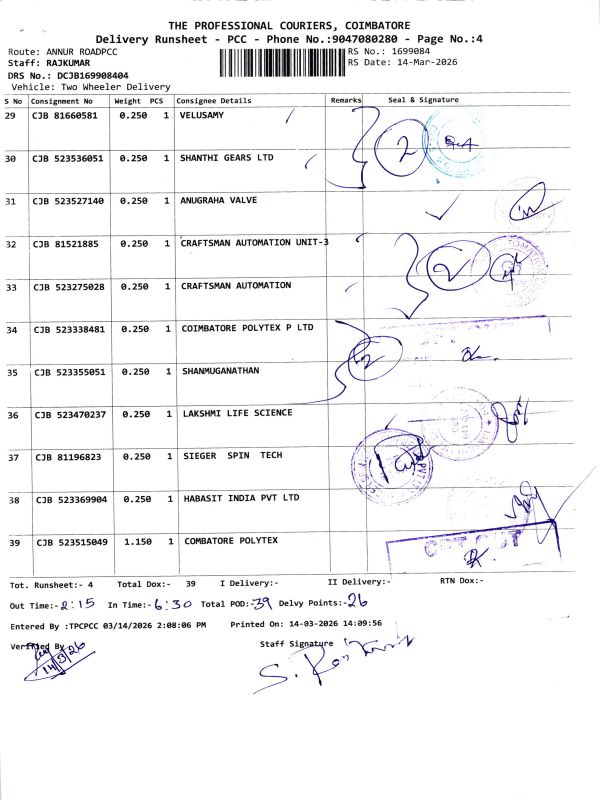 THE PROFESSIONAL COURIERS, COIMBATORE
Delivery Runsheet - PCC - Phone No.:9047080280 - Page No.:4
Route: ANNUR ROADPCC RS No.: 1699084
Staff: RAJKUMAR RS Date: 14-Mar-2026
DRS No.: DCJB169908404
Vehicle: Two Wheeler Delivery
S No Consignment No Weight PCS Consignee Details Remarks Seal & Signature
29 CJB 81660581 0.250 1 VELUSAMY
2
30 CJB 523536051 0.250 1 SHANTHI GEARS LTD
31 CJB 523527140 0.250 1 ANUGRAHA VALVE
32 CJB 81521885 0.250 1 CRAFTSMAN AUTOMATION UNIT-3
2
33 CJB 523275028 0.250 1 CRAFTSMAN AUTOMATION
34 CJB 523338481 0.250 1 COIMBATORE POLYTEX P LTD
2
35 CJB 523355051 0.250 1 SHANMUGANATHAN
36 CJB 523470237 0.250 1 LAKSHMI LIFE SCIENCE
37 CJB 81196823 0.250 1 SIEGER SPIN TECH
38 CJB 523369904 0.250 1 HABASIT INDIA PVT LTD
39 CJB 523515049 1.150 1 COMBATORE POLYTEX
Tot. Runsheet:- 4 Total Dox:- 39 I Delivery:- II Delivery:- RTN Dox:-
Out Time:- 2:15 In Time:- 6:30 Total POD:- 39 Delvy Points:- 26
Entered By :TPCPCC 03/14/2026 2:08:06 PM Printed On: 14-03-2026 14:09:56
Verified By Staff Signature
14/3/26